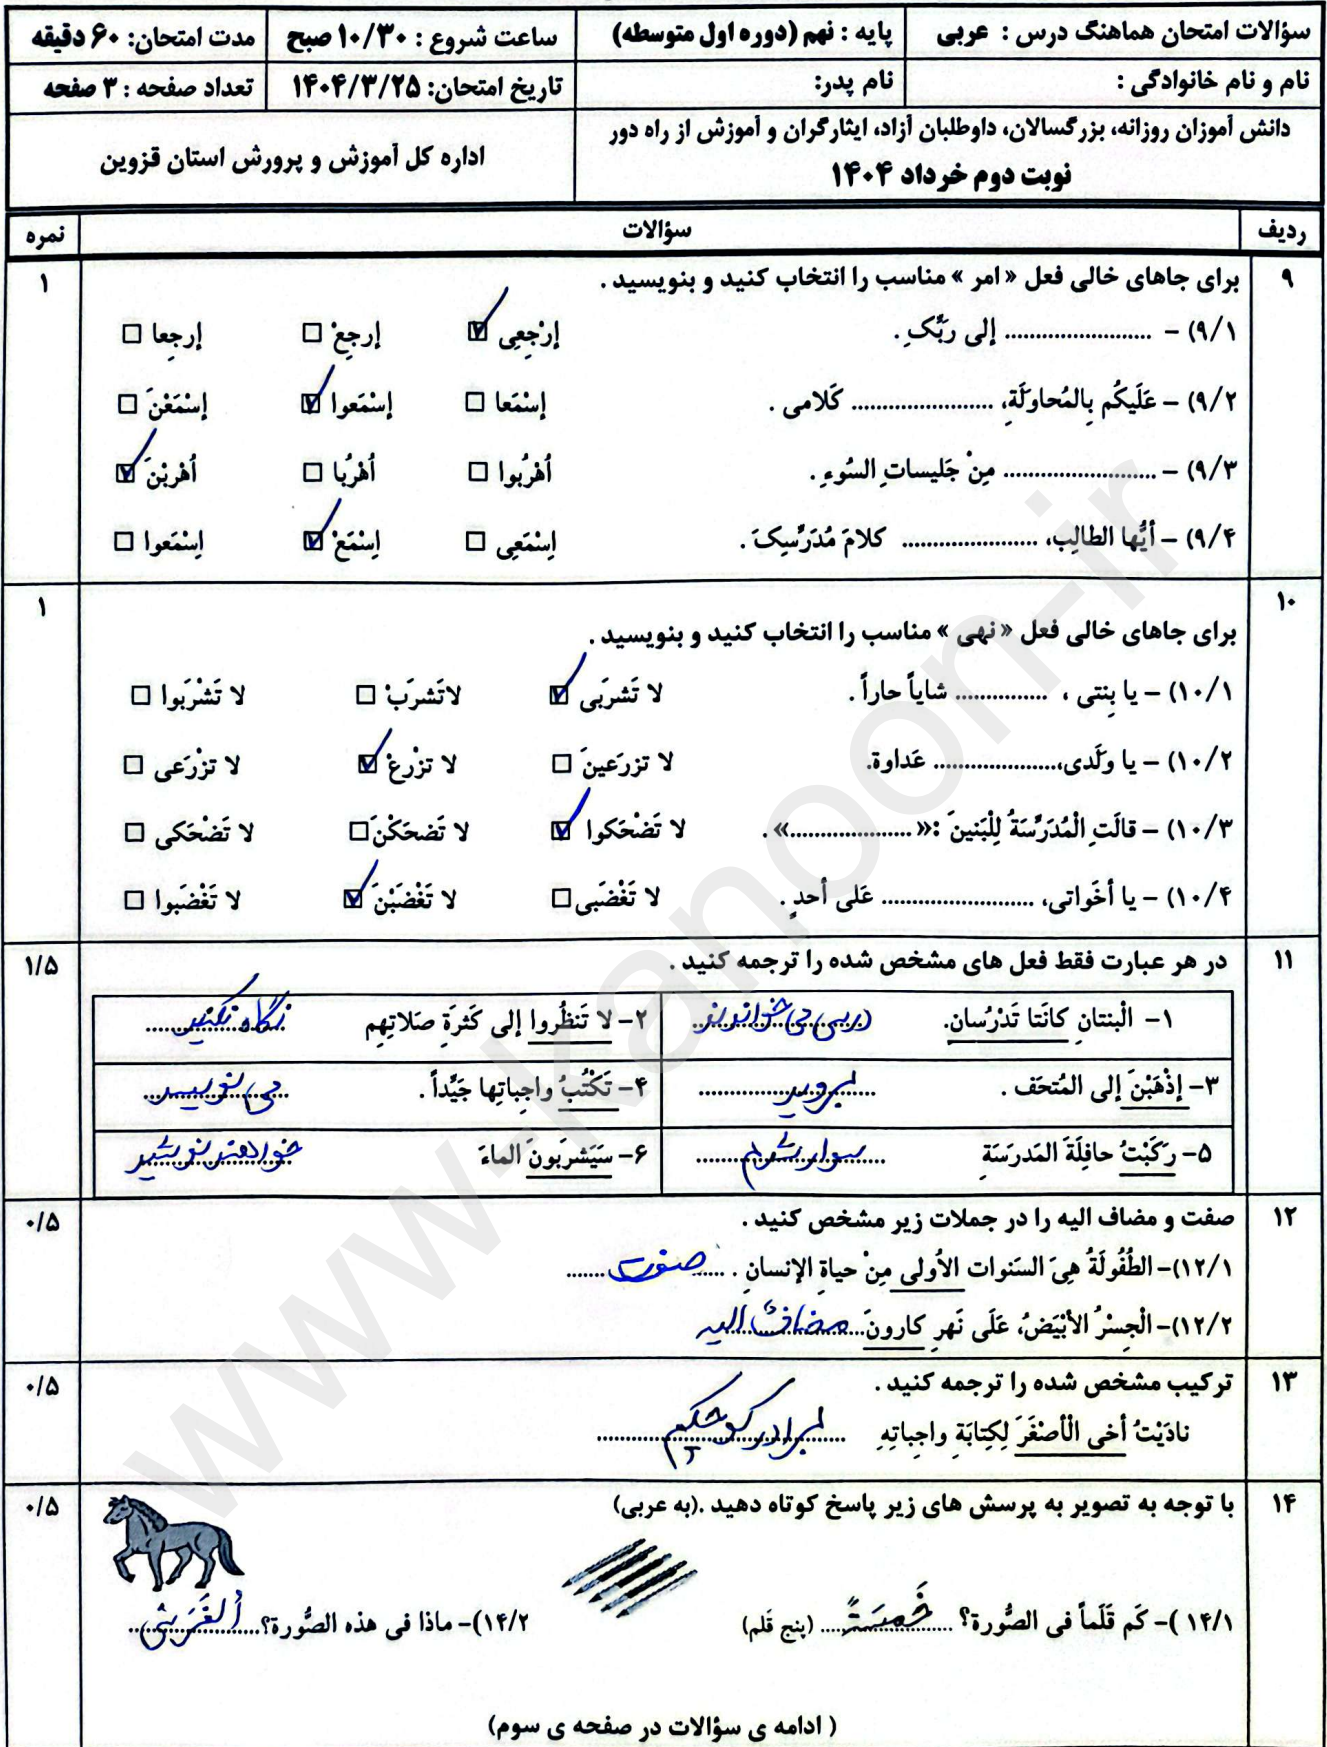 سؤالات امتحان هماهنگ درس : عربی	پایه : نهم (دوره اول متوسطه)	ساعت شروع : ۱۰/۳۰ صبح	مدت امتحان: ۶۰ دقیقه
نام و نام خانوادگی :	نام پدر:	تاریخ امتحان: ۱۴۰۴/۳/۲۵	تعداد صفحه : ۳ صفحه
دانش آموزان روزانه، بزرگسالان، داوطلبان آزاد، ایثارگران و آموزش از راه دور
نوبت دوم خرداد ۱۴۰۴
اداره کل آموزش و پرورش استان قزوین
ردیف	سؤالات	نمره
۹	برای جاهای خالی فعل « امر » مناسب را انتخاب کنید و بنویسید .	۱
۹/۱) - ........................ إلی رَبِّکِ.	إرْجِعِی ☑	إرجِعْ □	إرجِعا □
۹/۲) - عَلَیکُم بِالمُحاوَلَةِ، ....................... کَلامی .	إسْمَعا □	إسْمَعوا ☑	إسْمَعْنَ □
۹/۳) - ......................... مِنْ جَلیساتِ السُوءِ .	اُهْرُبوا □	اُهْرُبا □	اُهْرِبْنَ ☑
۹/۴) - أیُّها الطالِب، ...................... کلامَ مُدَرِّسِکَ .	اِسْتَمَعِی □	اِسْتَمَعْ ☑	اِسْتَمَعوا □
۱۰	۱
برای جاهای خالی فعل « نهی » مناسب را انتخاب کنید و بنویسید .
۱۰/۱) - یا بِنتی ، ............... شایاً حاراً .	لا تَشرَبی ☑	لاتَشرَبْ □	لا تَشْرَبوا □
۱۰/۲) - یا وَلَدی،.................... عَداوة.	لا تزرَعینَ □	لا تزْرعْ ☑	لا تزْرَعی □
۱۰/۳) - قالَتِ الْمُدَرِّسَةُ لِلْبَنینَ :« .................... » .	لا تَضْحَکوا ☑	لا تَضحَکْنَ □	لا تَضْحَکی □
۱۰/۴) - یا أخَواتی، ......................... عَلی أحدٍ .	لا تَغْضَبی □	لا تَغْضَبْنَ ☑	لا تَغْضَبوا □
۱۱	در هر عبارت فقط فعل های مشخص شده را ترجمه کنید .	۱/۵
۱- الْبنتانِ کانَتا تَدْرُسان.	درس می خواندند	۲- لا تَنظُروا إلی کَثرَةِ صَلاتِهِم	نگاه نکنید
۳- إذْهَبْنَ إلی المُتحَف .	بروید	۴- تَکْتُبُ واجِباتِها جَیِّداً .	می نویسد
۵- رَکَبْتُ حافِلَةَ المَدرَسَةِ	سوار شدم	۶- سَیَشرَبونَ الماءَ	خواهند نوشید
۱۲	صفت و مضاف الیه را در جملات زیر مشخص کنید .	۰/۵
۱۲/۱)- الطُفُولَةُ هِیَ السَنوات الاُولی مِنْ حیاةِ الإنسانِ . صفت
۱۲/۲)- الْجِسْرُ الأبْیَضُ، عَلَی نَهرِ کارونَ مضاف الیه
۱۳	ترکیب مشخص شده را ترجمه کنید .	۰/۵
نادَیْتُ أخی الْأصْغَرَ لِکِتابَةِ واجِباتِهِ	برادر کوچکم
۱۴	با توجه به تصویر به پرسش های زیر پاسخ کوتاه دهید .(به عربی)	۰/۵
۱۴/۱ )- کَم قَلَماً فی الصُّورة؟ خَمسَةً (پنج قلم)	۱۴/۲)- ماذا فی هذه الصُّورة؟ اَلفَرَس
( ادامه ی سؤالات در صفحه ی سوم)